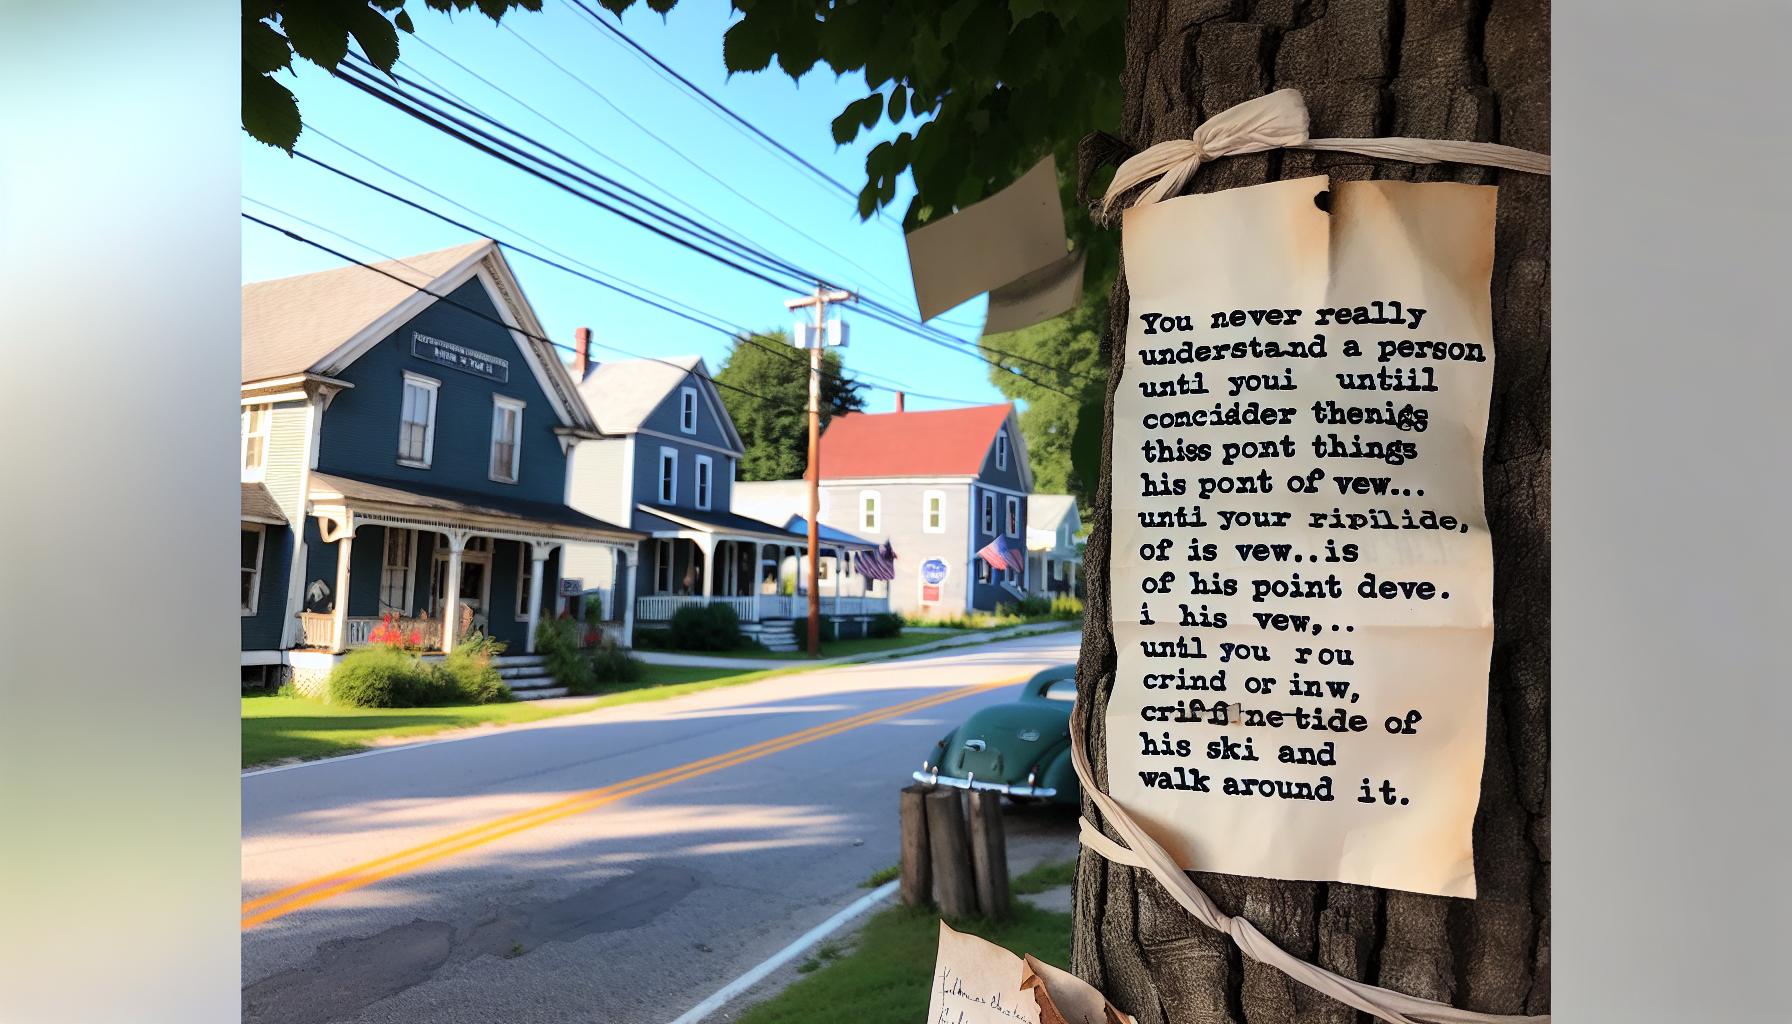 You never really
understand a person
until youi untiil
concidder thenigs
thiss pont things
his pont of vew...
until your ripilide,
of is vew..is
of his point deve.
i his vew,..
until you rou
crind or inw,
of
his ski and
walk around it.